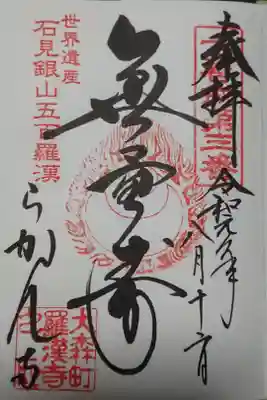 奉拝
第三番
令和元年
八月十
無量寿
世界遺産
石見銀山五百羅漢
らかん寺
大森町
羅漢寺